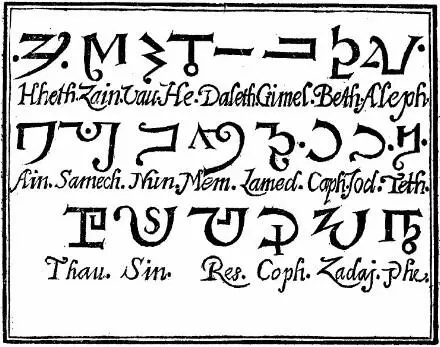 Hheth. Zain. Vau. He. Daleth. Gimel. Beth. Aleph.
Ain. Samech. Nun. Mem. Lamed. Caph. Jod. Teth.
Thau. Sin. Res. Coph. Zadaj. Phe.